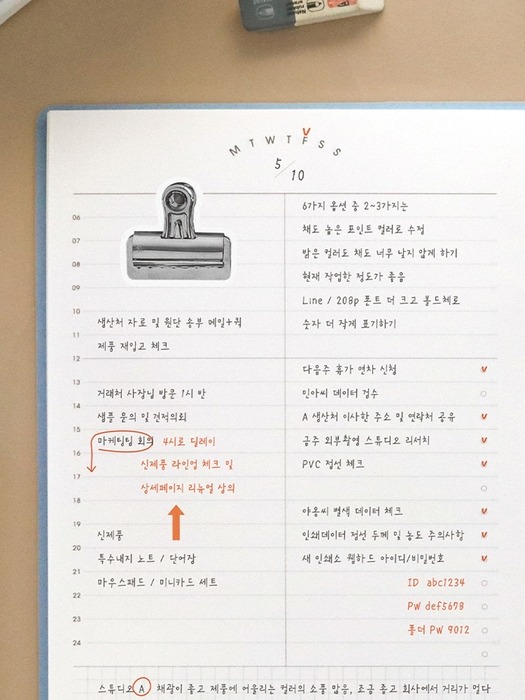 M T W T F S S
5/10
06
07
08
09
10
11
12
13
14
15
16
17
18
19
20
21
22
23
24
생산처 자료 및 원단 송부 메일+퀵
제품 재입고 체크
거래처 사장님 방문 1시 반
샘플 문의 및 견적의뢰
마케팅팀 회의 4시로 딜레이
신제품 라인업 체크 및
상세페이지 리뉴얼 상의
신제품
특수내지 노트 / 단어장
마우스패드 / 미니카드 세트
6가지 옵션 중 2~3가지는
채도 높은 포인트 컬러로 수정
밝은 컬러도 채도 너무 낮지 않게 하기
현재 작업한 정도가 좋음
Line / 208p 폰트 더 크고 볼드체로
숫자 더 작게 표기하기
다음주 휴가 연차 신청
민아씨 데이터 검수
A 생산처 이사한 주소 및 연락처 공유
공주 외부촬영 스튜디오 리서치
PVC 칼선 체크
아용씨 별색 데이터 체크
인쇄데이터 칼선 두께 및 농도 주의사항
새 인쇄소 웹하드 아이디/비밀번호
ID abc1234
PW def5678
폴더 PW 9012
스튜디오 A 채광이 좋고 제품에 어울리는 컬러의 소품 많음, 조금 좁고 회사에서 거리가 멀다